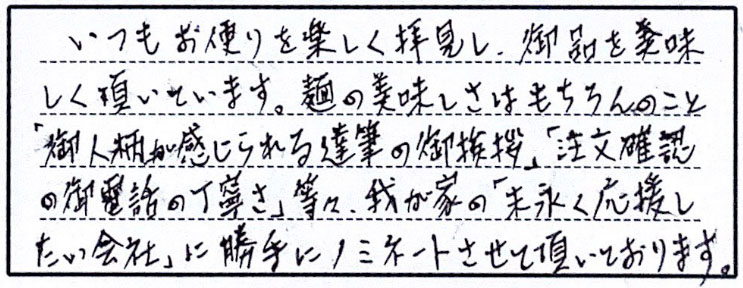 いつもお便りを楽しく拝見し、御品を美味
しく頂いています。麺の美味しさはもちろんのこと
「御人柄が感じられる達筆の御挨拶」「注文確認
の御電話の丁寧さ」等々、我が家の「末永く応援し
たい会社」に勝手にノミネートさせて頂いております。